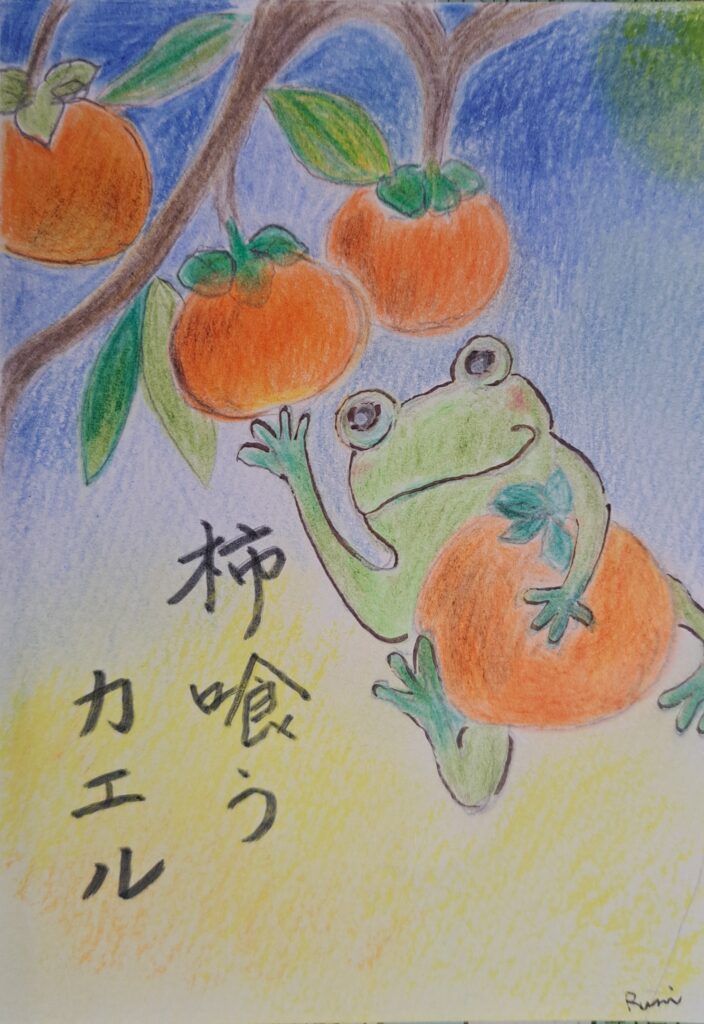 柿喰う
カエル